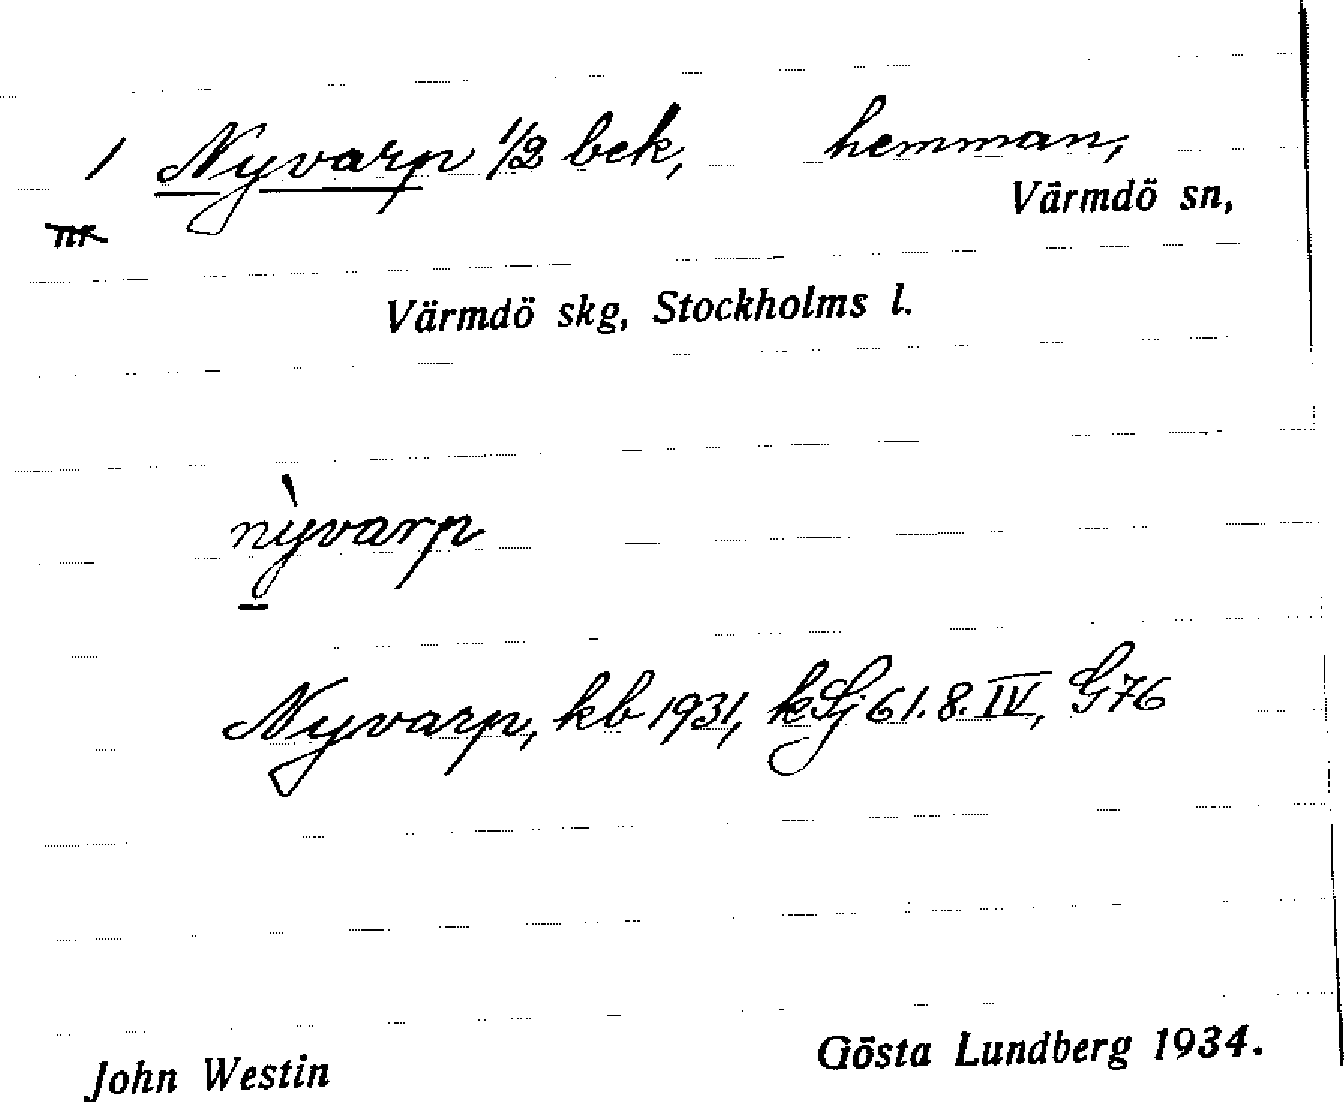 / Nyvarp 1/2 bek, hemman,
Värmdö sn,
nr
Värmdö skg, Stockholms l.
nỳvarp
Nyvarp, kb 1931, kSj 61. 8. IV, G76
John Westin Gösta Lundberg 1934.